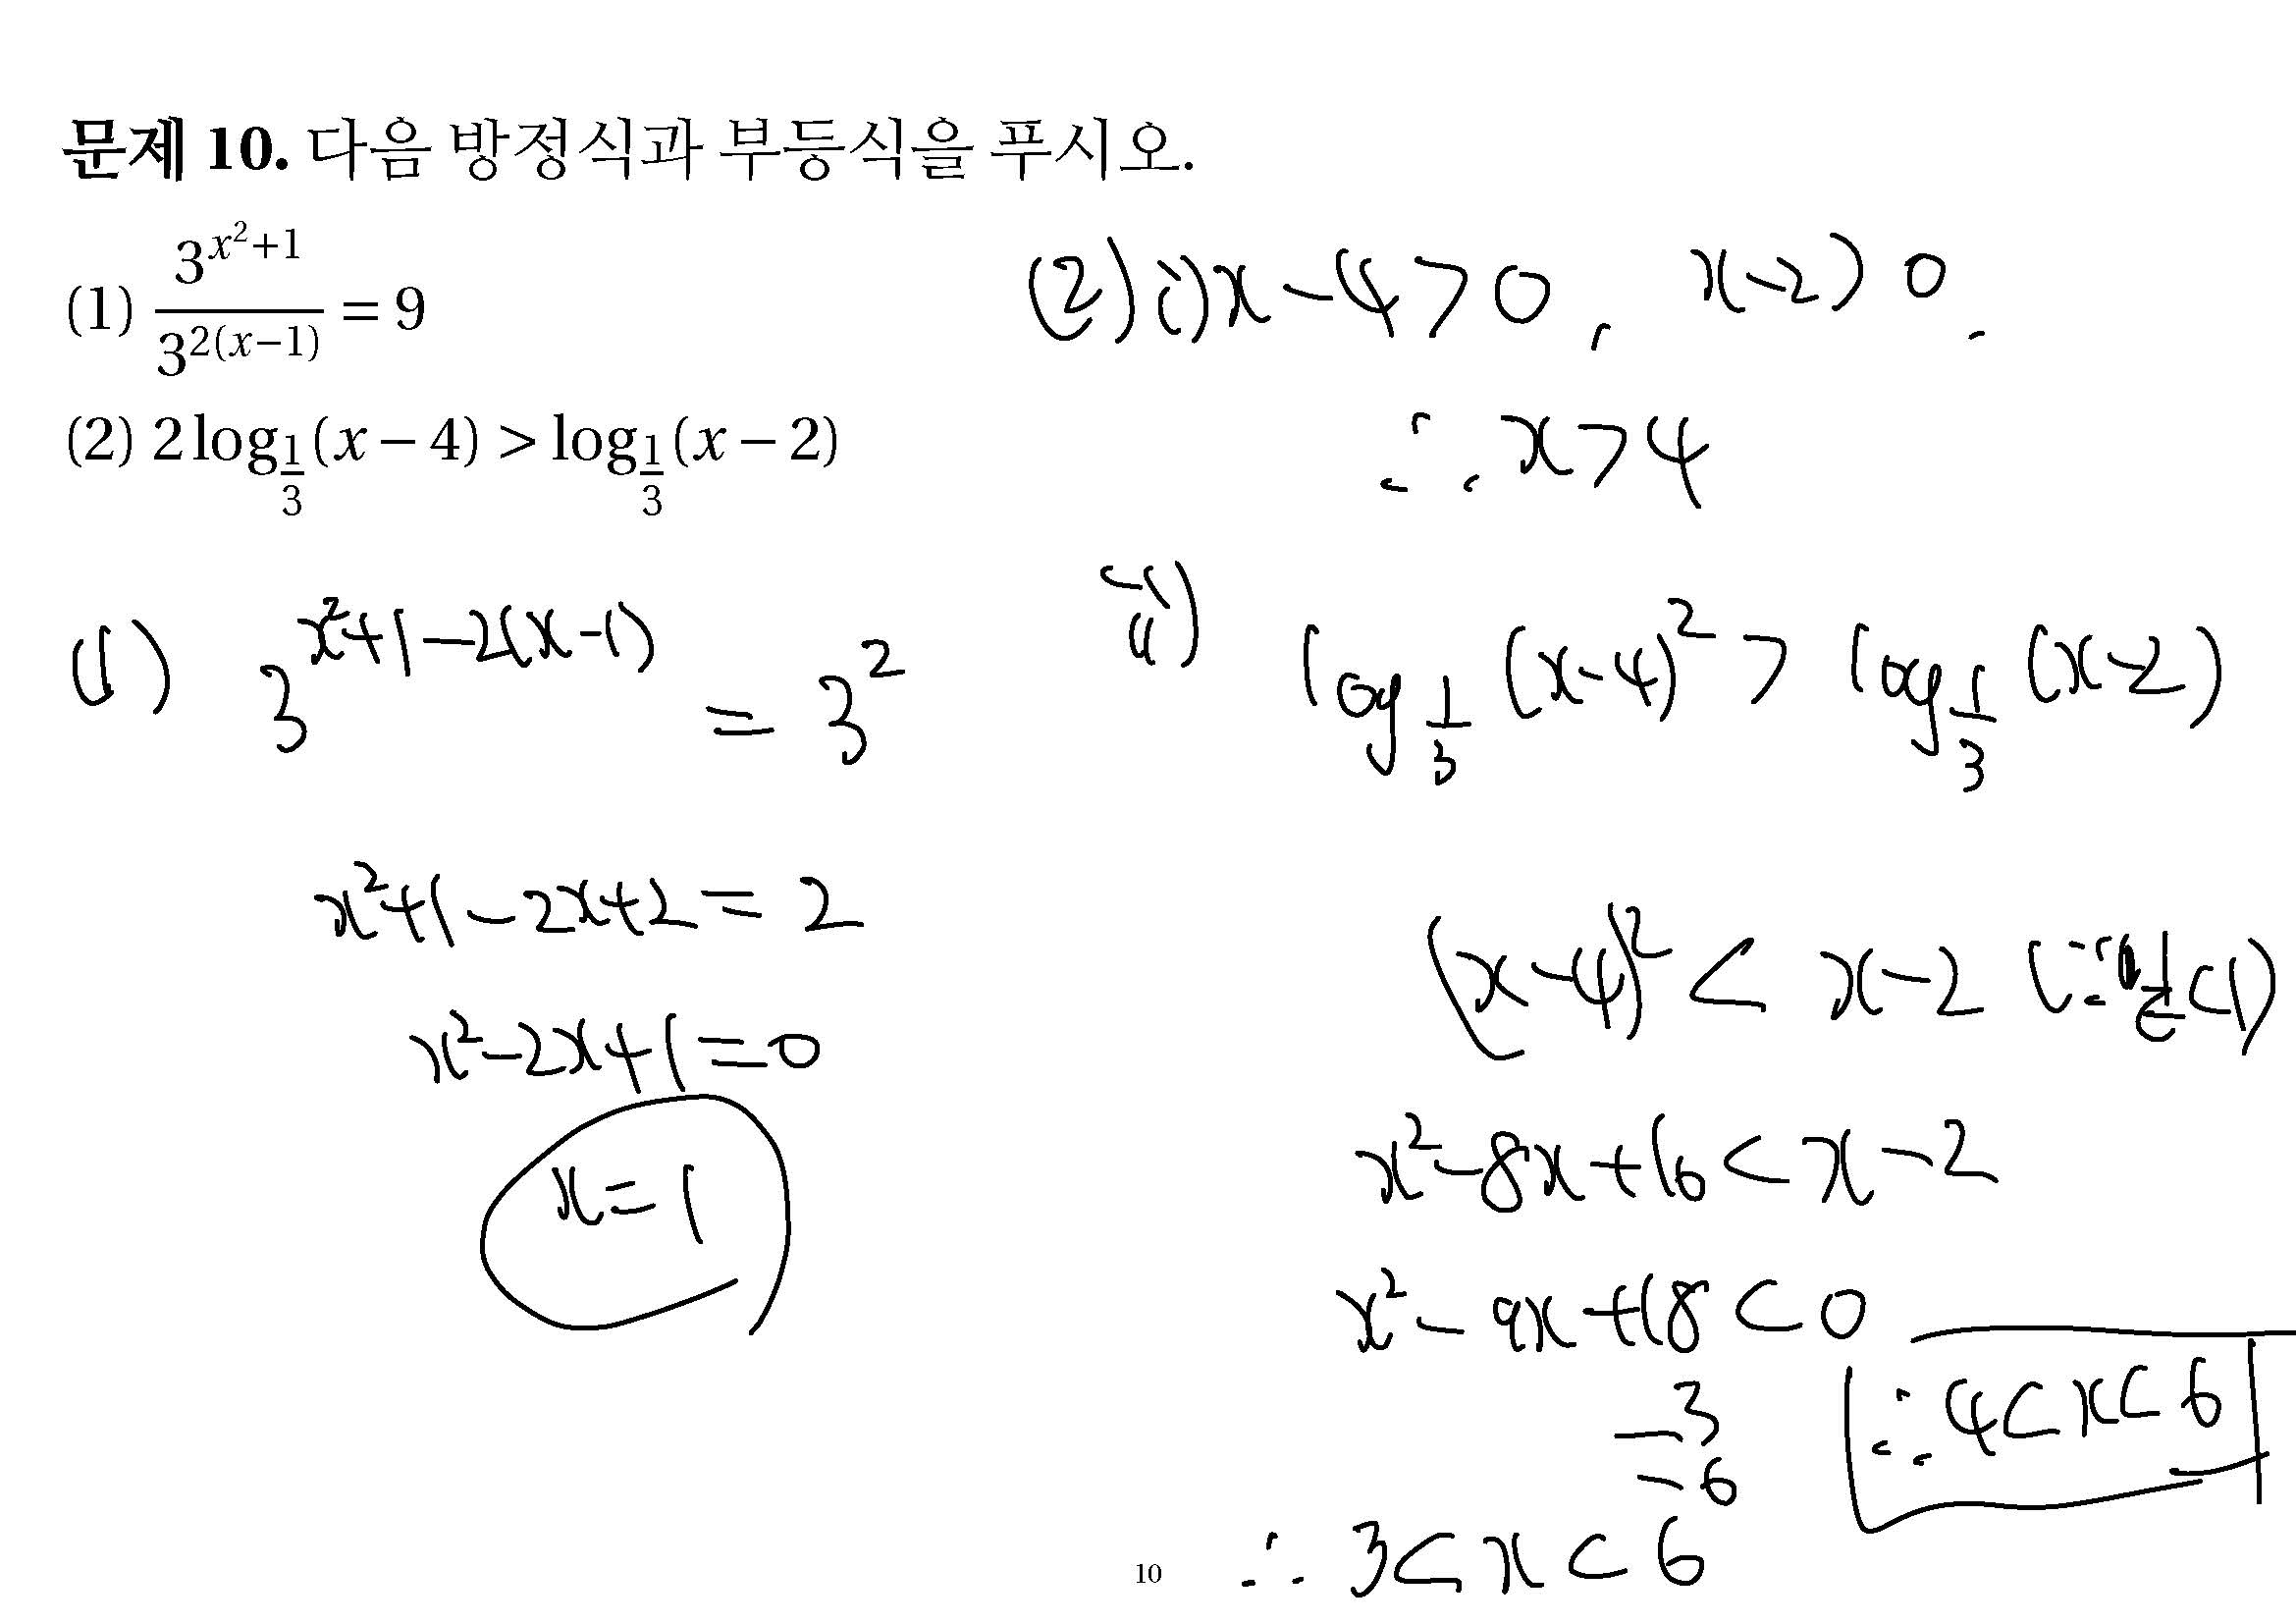 문제 10. 다음 방정식과 부등식을 푸시오.
(1) \frac{3^{x^2+1}}{3^{2(x-1)}} = 9
(2) 2\log_{\frac{1}{3}}(x-4) > \log_{\frac{1}{3}}(x-2)
(1) 3^{x^2+1-2(x-1)} = 3^2
x^2+1-2x+2=2
x^2-2x+1=0
x=1
(2) i) x-4>0, x-2>0.
∴ x>4
ii) \log_{\frac{1}{3}}(x-4)^2 > \log_{\frac{1}{3}}(x-2)
(x-4)^2 < x-2 (∵ <1)
x^2-8x+16<x-2
x^2-9x+18<0
-3
-6
∴ 3<x<6
∴ 4<x<6
10